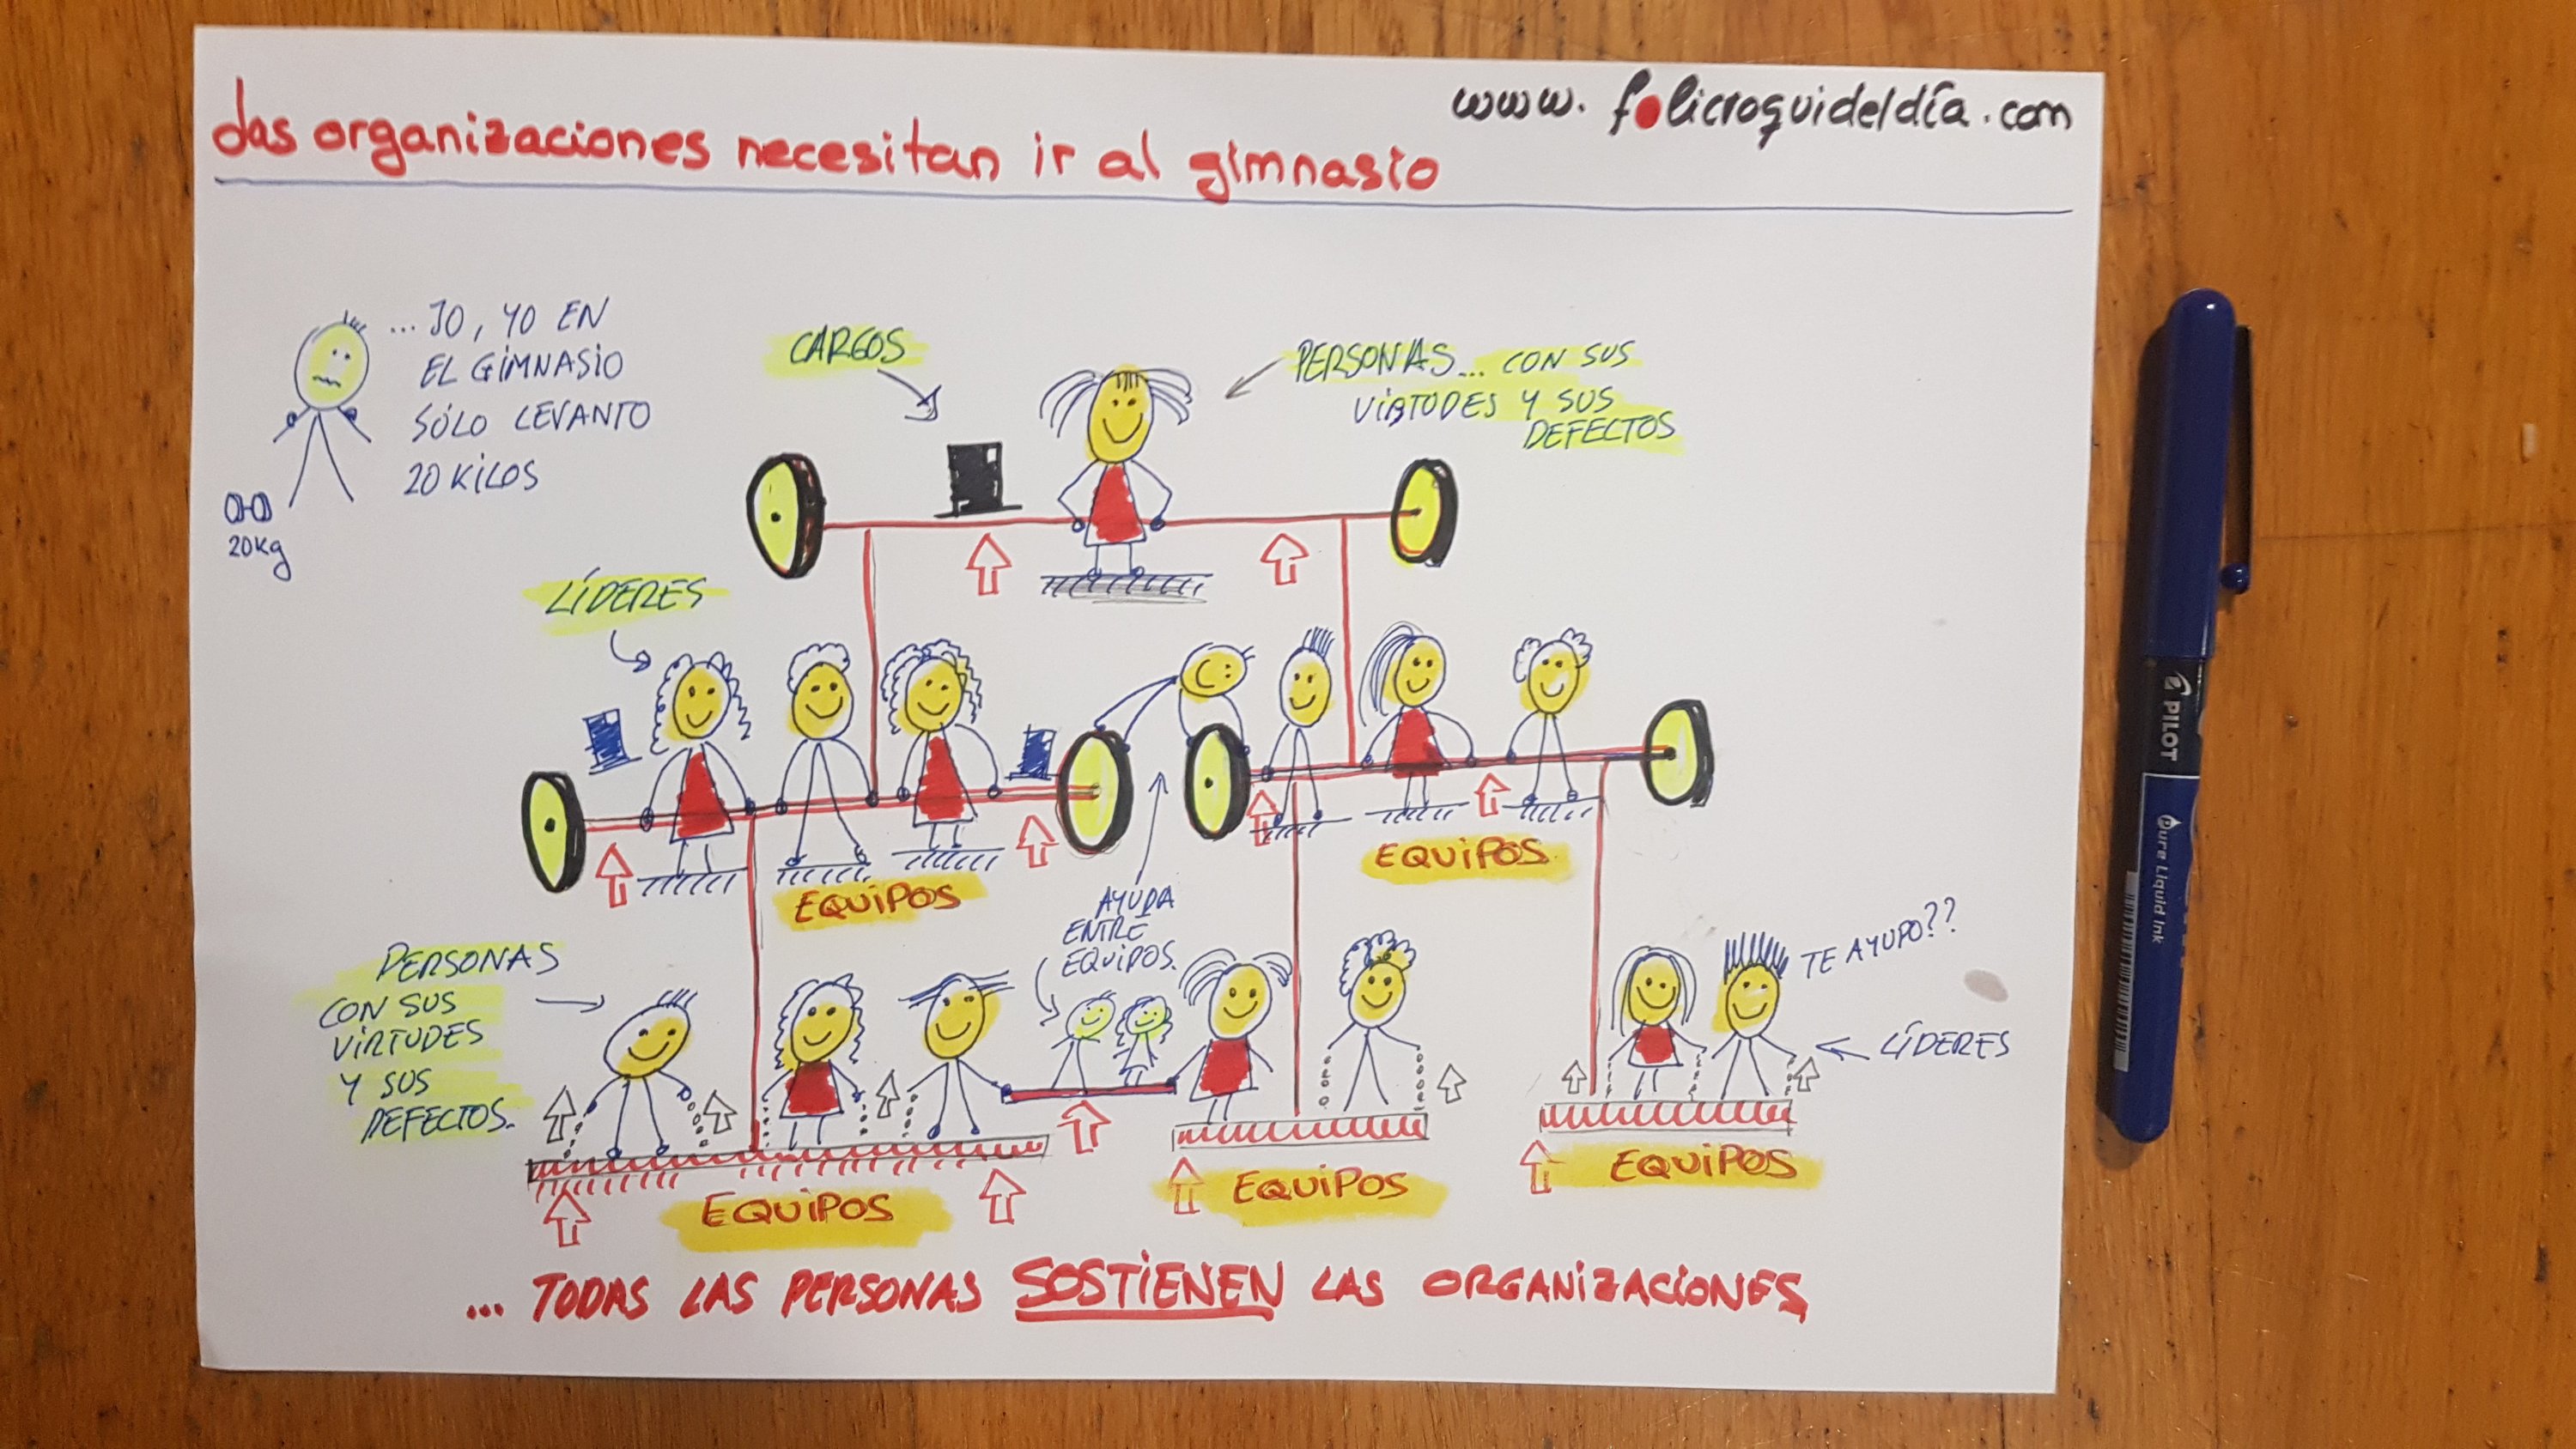 www. folicroquideldía.com
Las organizaciones necesitan ir al gimnasio
... JO, YO EN
EL GIMNASIO
SÓLO LEVANTO
20 KILOS
20Kg
CARGOS
PERSONAS... CON SUS
VIRTUDES Y SUS
DEFECTOS
LÍDERES
EQUIPOS
EQUIPOS
AYUDA
ENTRE
EQUIPOS.
PERSONAS
CON SUS
VIRTUDES
Y SUS
DEFECTOS.
TE AYUDO??
LÍDERES
EQUIPOS
EQUIPOS
EQUIPOS
... TODAS LAS PERSONAS SOSTIENEN LAS ORGANIZACIONES
PILOT
Pure Liquid Ink